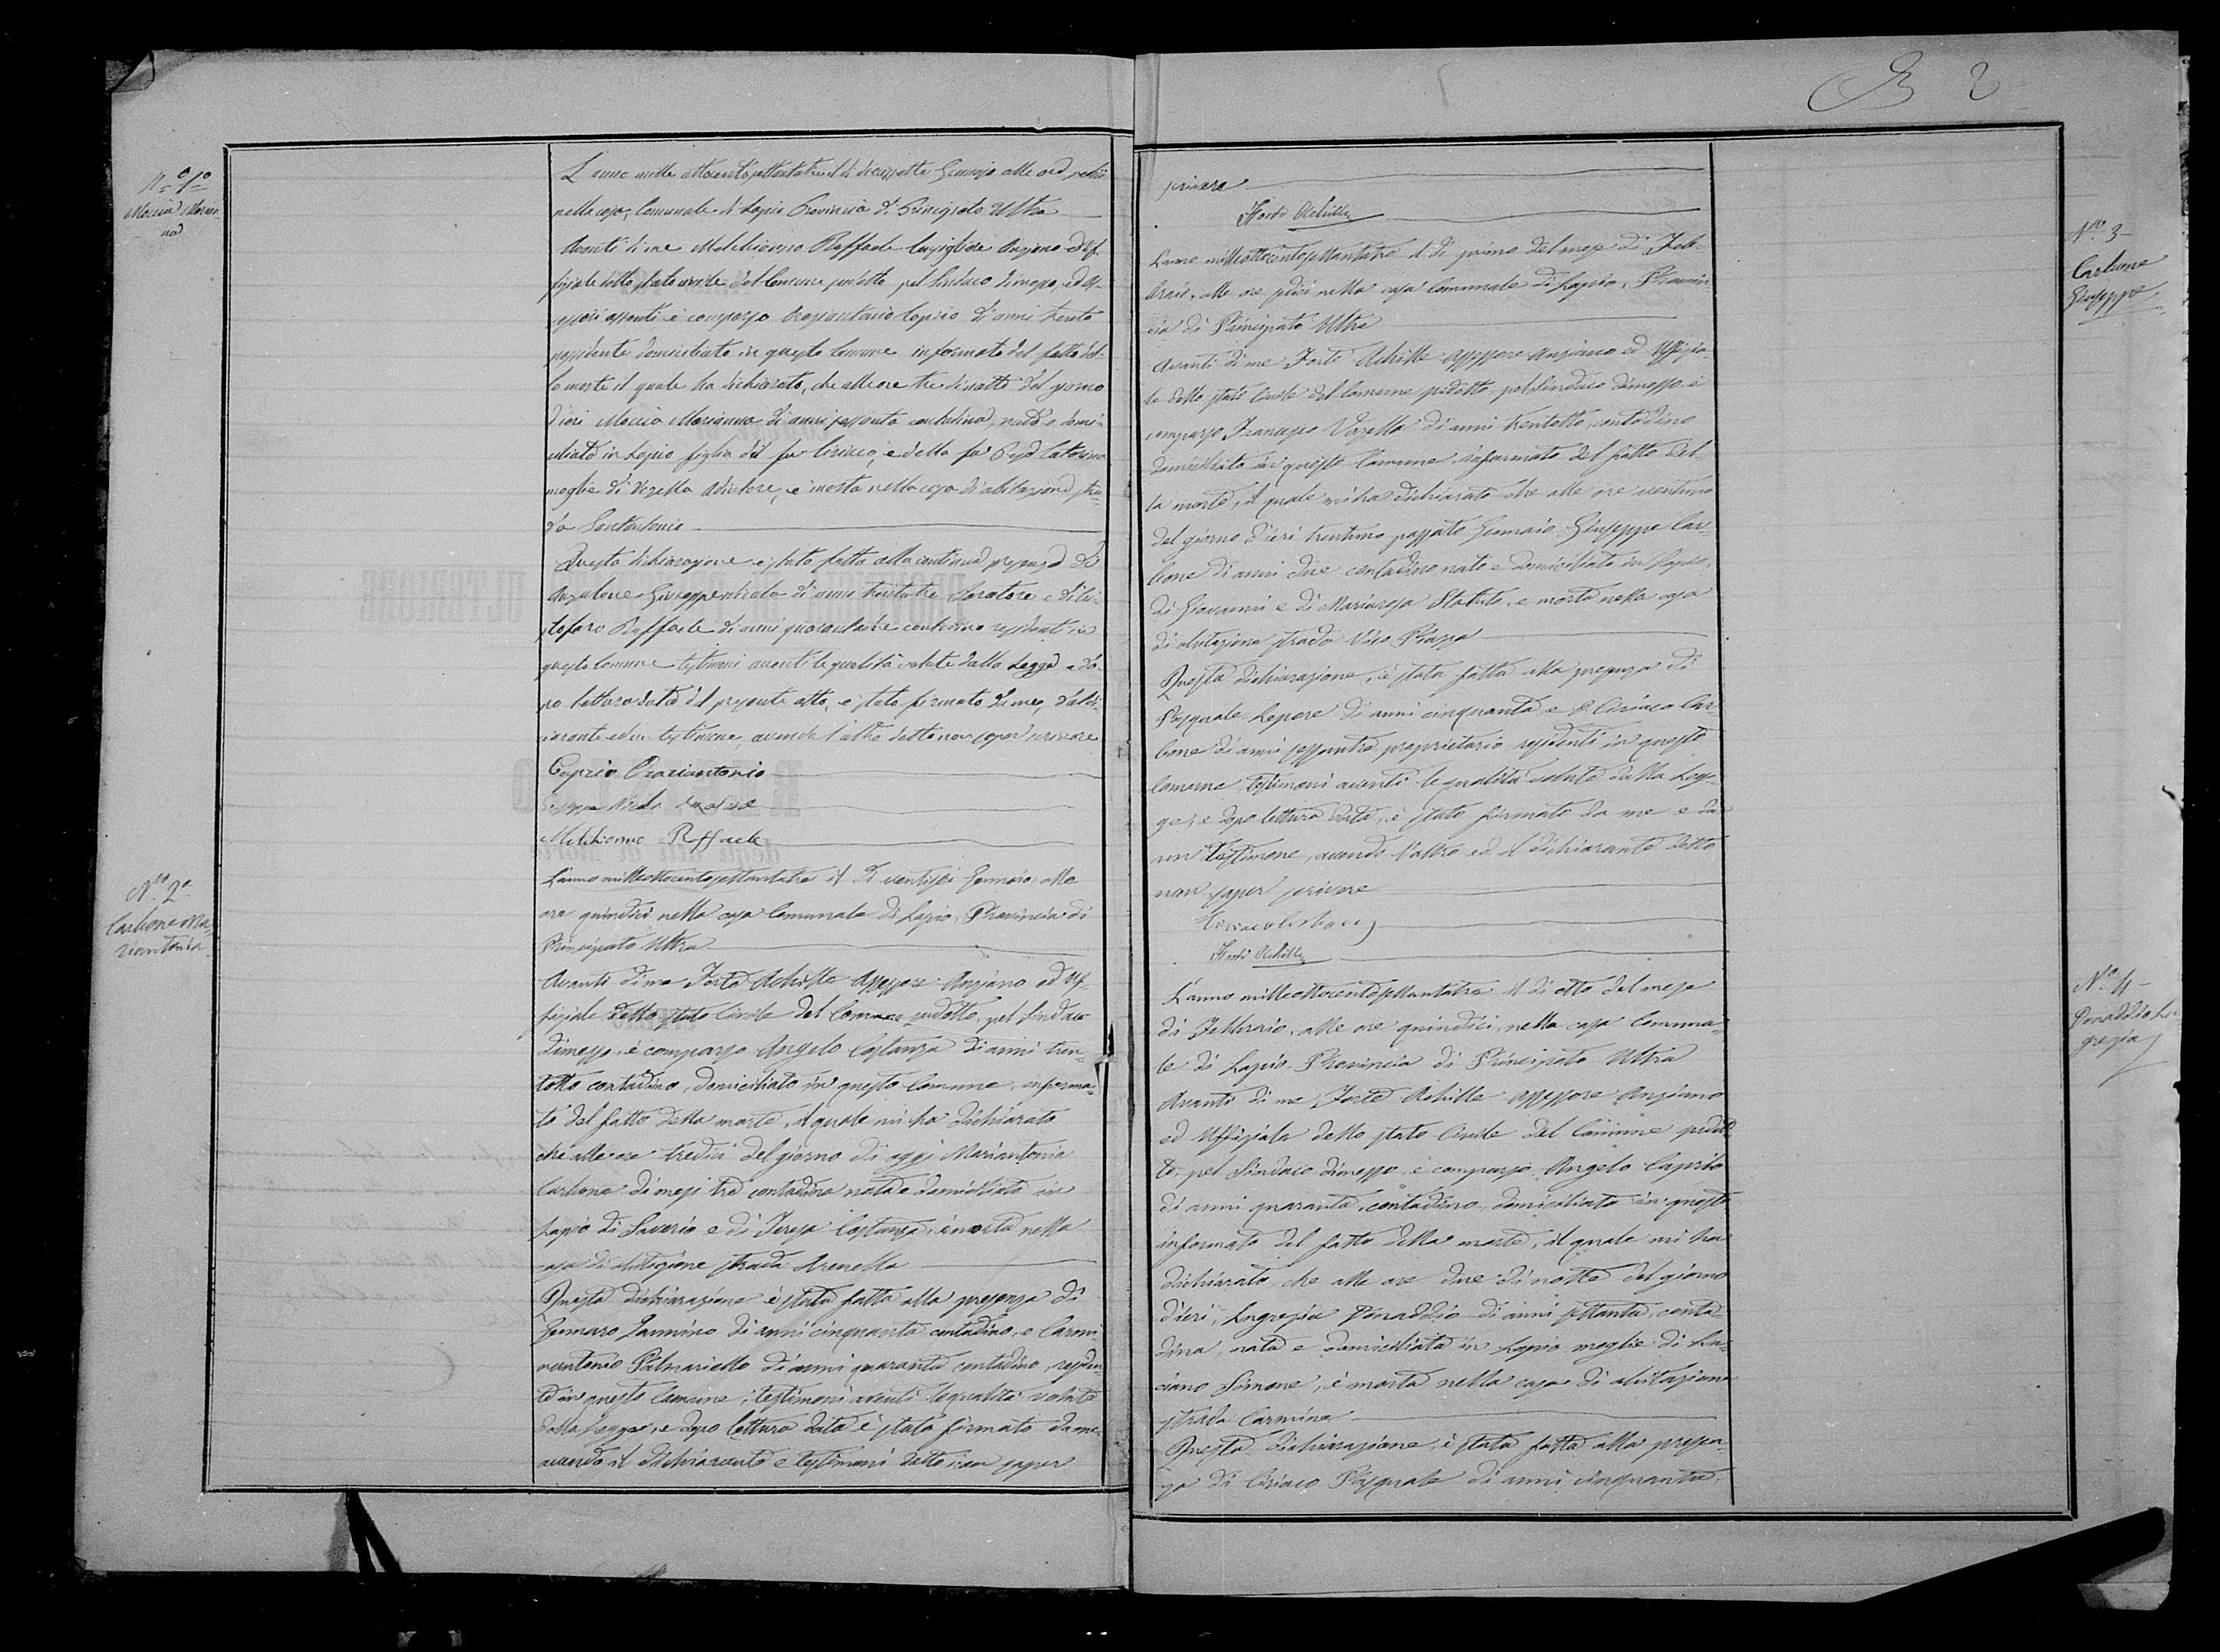 N.º 1º
Moccia Marian
na
L'anno mille ottocento settantatre il dì diciassette Gennajo alle ore sedici
nella casa Comunale di Lapio Provincia di Principato Ultra
Avanti di me Melchionno Raffaele Consigliere Anziano ed Uf-
fiziale dello stato civile del Comune suddetto pel Sindaco dimesso, ed as-
sessori assenti è comparso Oraziantonio Caprio di anni trenta
possidente domiciliato in questo Comune informato del fatto del-
la morte il quale ha dichiarato, che alle ore tre di notte del giorno
d'ieri Moccia Marianna di anni sessanta contadina, nata e domi-
ciliata in Lapio figlia del fu Ciriaco, e della fu Caterina
moglie di Vozella è morta nella casa di abitazione stra-
da Santantonio
Questa dichiarazione è stata fatta alla continua presenza di
Giuseppe Nicola di anni trentatre e di Cri-
stofaro Raffaele di anni quarantatre contadino residenti in
questo Comune testimoni aventi le qualità volute dalla Legge, e do-
po lettura data del presente atto, è stato firmato da me, dal di-
chiarante ed un testimone, avendo l'altro detto non saper scrivere
Caprio Oraziantonio
Giuseppe Nicola
Melchionno Raffaele
N.º 2º
Carbone Ma-
riantonia
L'anno milleottocentosettantatre il dì ventisei Gennaio, alle
ore quindici nella casa Comunale di Lapio, Provincia di
Principato Ultra
Avanti di me Forte Achille Assessore Anziano ed Uf-
fiziale dello stato Civile del Comune sudetto, pel Sindaco
dimesso, è comparso Angelo Costanza di anni tren-
totto contadino, domiciliato in questo Comune, informa-
to del fatto della morte, il quale mi ha dichiarato
che alle ore tredici del giorno di oggi Mariantonia
Carbone di mesi tre contadina nata e domiciliata in
Lapio di Saverio e di Teresa Costanza, è morta nella
casa di abitazione strada Arenella
Questa dichiarazione è stata fatta alla presenza di
Gennaro Iannino di anni cinquanta contadino, e Carmi-
nantonio Palmariello di anni quaranta contadino, residen-
ti in questo Comune, testimoni aventi le qualità volute
dalla Legge, e dopo lettura data è stato firmato da me
avendo il dichiarante e testimoni detto non saper
2
scrivere
Forte Achille
Nº 3
Carbone
Giuseppe
L'anno milleottocentosettantatre il dì primo del mese di Feb-
braio, alle ore sedici nella casa Comunale di Lapio, Provin-
cia di Principato Ultra
Avanti di me Forte Achille Assessore Anziano ed Uffizia-
le dello stato Civile del Comune sudetto pel Sindaco dimesso, è
comparso Francesco Vozella di anni trentotto, contadino
domiciliato in questo Comune, informato del fatto del-
la morte, il quale mi ha dichiarato che alle ore ventuno
del giorno d'ieri trentuno passato Gennaio Giuseppe Car-
bone di anni due contadino, nato e domiciliato in Lapio,
di Giovanni e di Mariarosa Statuto, è morto nella casa
di abitazione strada Vico Piazza
Questa dichiarazione, è stata fatta alla presenza di
Pasquale Lepore di anni cinquanta, e D. Ciriaco Car-
bone di anni sessantre proprietario residenti in questo
Comune, testimoni aventi le qualità volute dalla Leg-
ge, e dopo lettura data, è stato firmato da me e da
un testimone, avendo l'altro ed il dichiarante detto
non saper scrivere
Ciriaco Carbone
Forte Achille
Nº 4
Donaddio Lu-
grezia
L'anno milleottocentosettantatre il dì otto del mese
di Febbraio, alle ore quindici, nella casa Comuna-
le di Lapio, Provincia di Principato Ultra
Avanti di me Forte Achille Assessore Anziano
ed Uffiziale dello stato Civile del Comune sudet-
to, pel Sindaco dimesso, è comparso Angelo Caprio
di anni quaranta, contadino, domiciliato in questo
informato del fatto della morte, il quale mi ha
dichiarato, che alle ore due di notte del giorno
d'ieri, Lugrezia Donaddio di anni settanta, conta-
dina, nata e domiciliata in Lapio moglie di Lu-
ciano Simone, è morta nella casa di abitazione
strada Carmine
Questa dichiarazione, è stata fatta alla presen-
za di Ciriaco Pasquale di anni cinquantre,